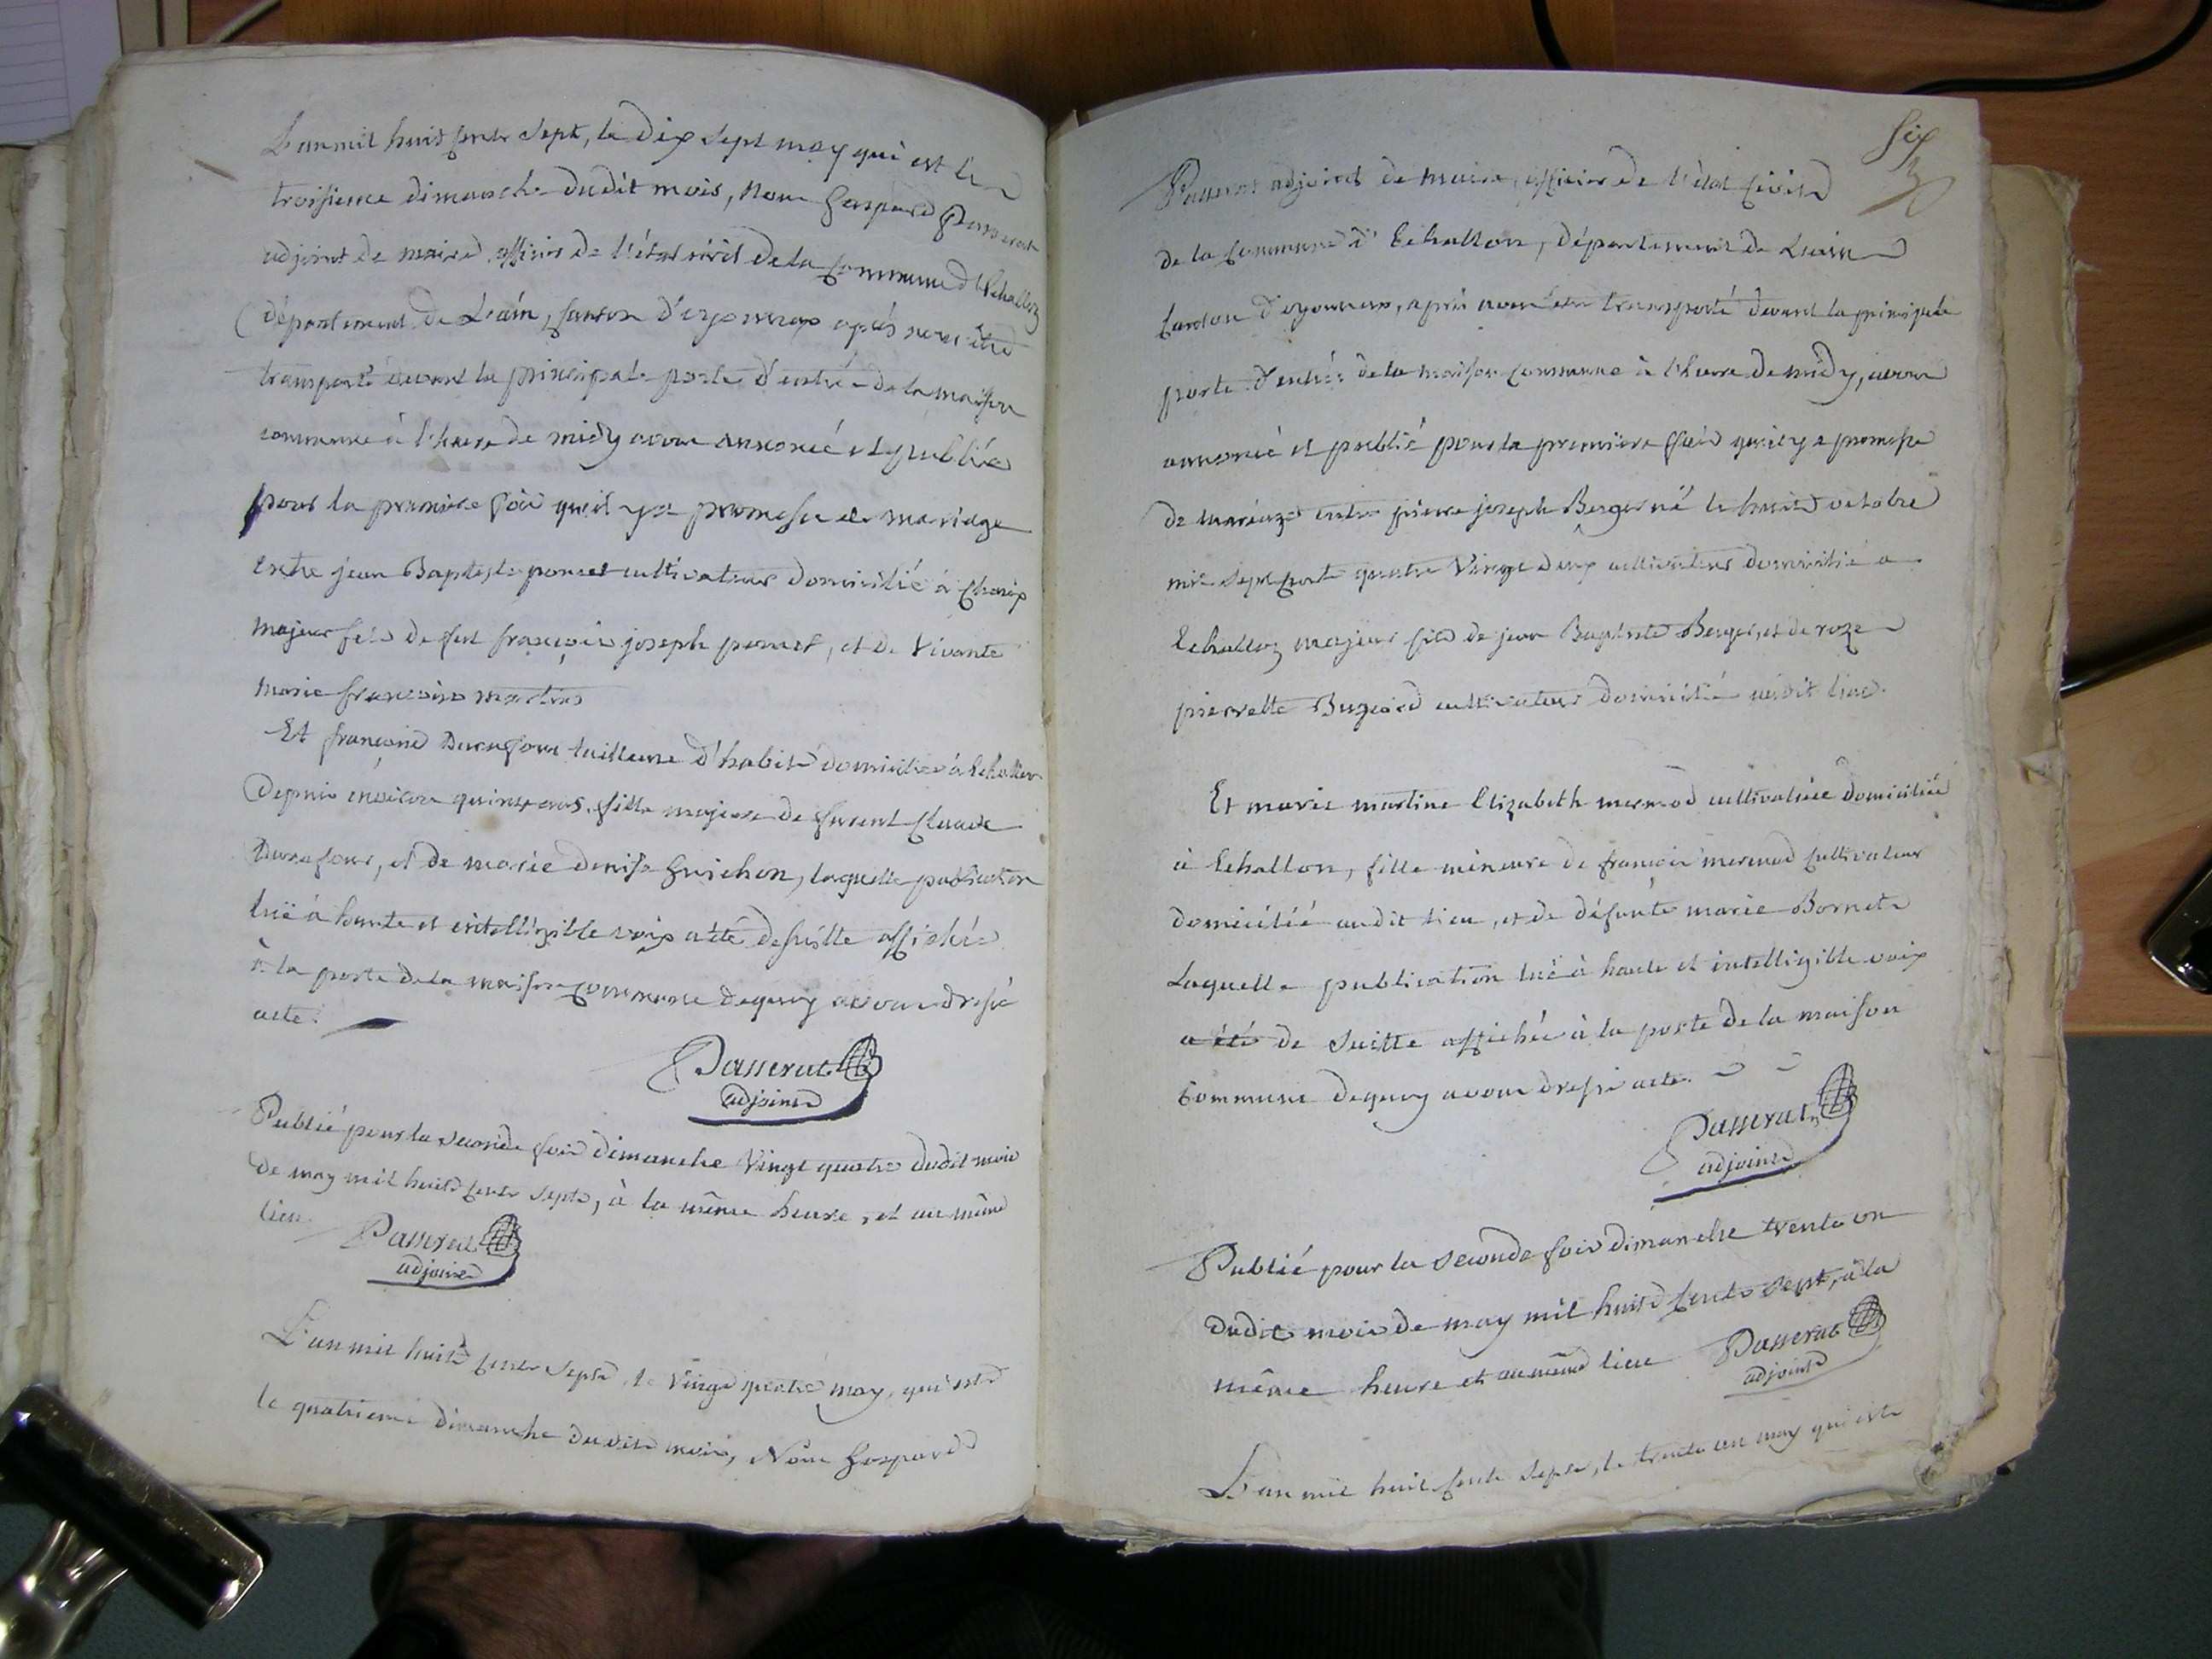 L'an mil huit cents sept, le dix sept may qui est le
troisieme dimanche dudit mois, Nous Gaspard Passerat
adjoint de maire officier de l'état civil de la commune d'Echallon
département de L'ain, canton d'oyonnax après nous être
transporté devant la principale porte d'entrée de la maison
commune à l'heure de midy avons annoncé et publié
pour la premiere fois qu'il y a promesse de mariage
Entre jean Baptiste poncet cultivateur domicilié à Charix
majeur fils de feu françois joseph poncet, et de Vivante
marie françoise martin
Et françoise Durafour tailleuse d'habits domiciliée à Echallon
Depuis environ quinze ans, fille majeure de furent Claude
Durafour, et de marie denise Guichon, laquelle publication
luë à haute et intelligible voix a été desuitte affichée
à la porte de la maison commune dequoy avons dressé
acte.
Passerat
adjoint
Publié pour la seconde fois dimanche Vingt quatre dudit mois
de may mil huit cents sept, à la même heure, et au même
lieu.
Passerat
adjoint
L'an mil huit cents sept, le Vingt quatre may, qui est
le quatrieme dimanche dudit mois, Nous Gaspard
six
Passerat adjoint de maire, officier de l'état civil
de la commune d'Echallon, département de L'ain
canton d'oyonnax, après transporté devant la principale
porte d'entrée de la maison commune à l'heure de midy, avons
annoncé et publié pour la premiere fois qu'il y a promesse
de mariage entre pierre joseph Berger né le huit octobre
mil sept cents quatre Vingt deux cultivateur domicilié a
Echallon majeur fils de jean Baptiste Berger, et de roze
pierrette Bugeod cultivateur domicilié audit lieu.
Et marie martine Elizabeth mermod cultivatrice domiciliée
à Echallon, fille mineure de françois mermod cultivateur
domicilié audit lieu, et de défunte marie Bornet
Laquelle publication luë à haute et intelligible voix
a été de suitte affichée à la porte de la maison
Commune dequoy avons dressé acte.
Passerat
adjoint
Publié pour la seconde fois dimanche trente un
dudit mois de may mil huit cents sept, à la
même heure et au même lieu
Passerat
adjoint
L'an mil huit cents sept, le trente un may qui est